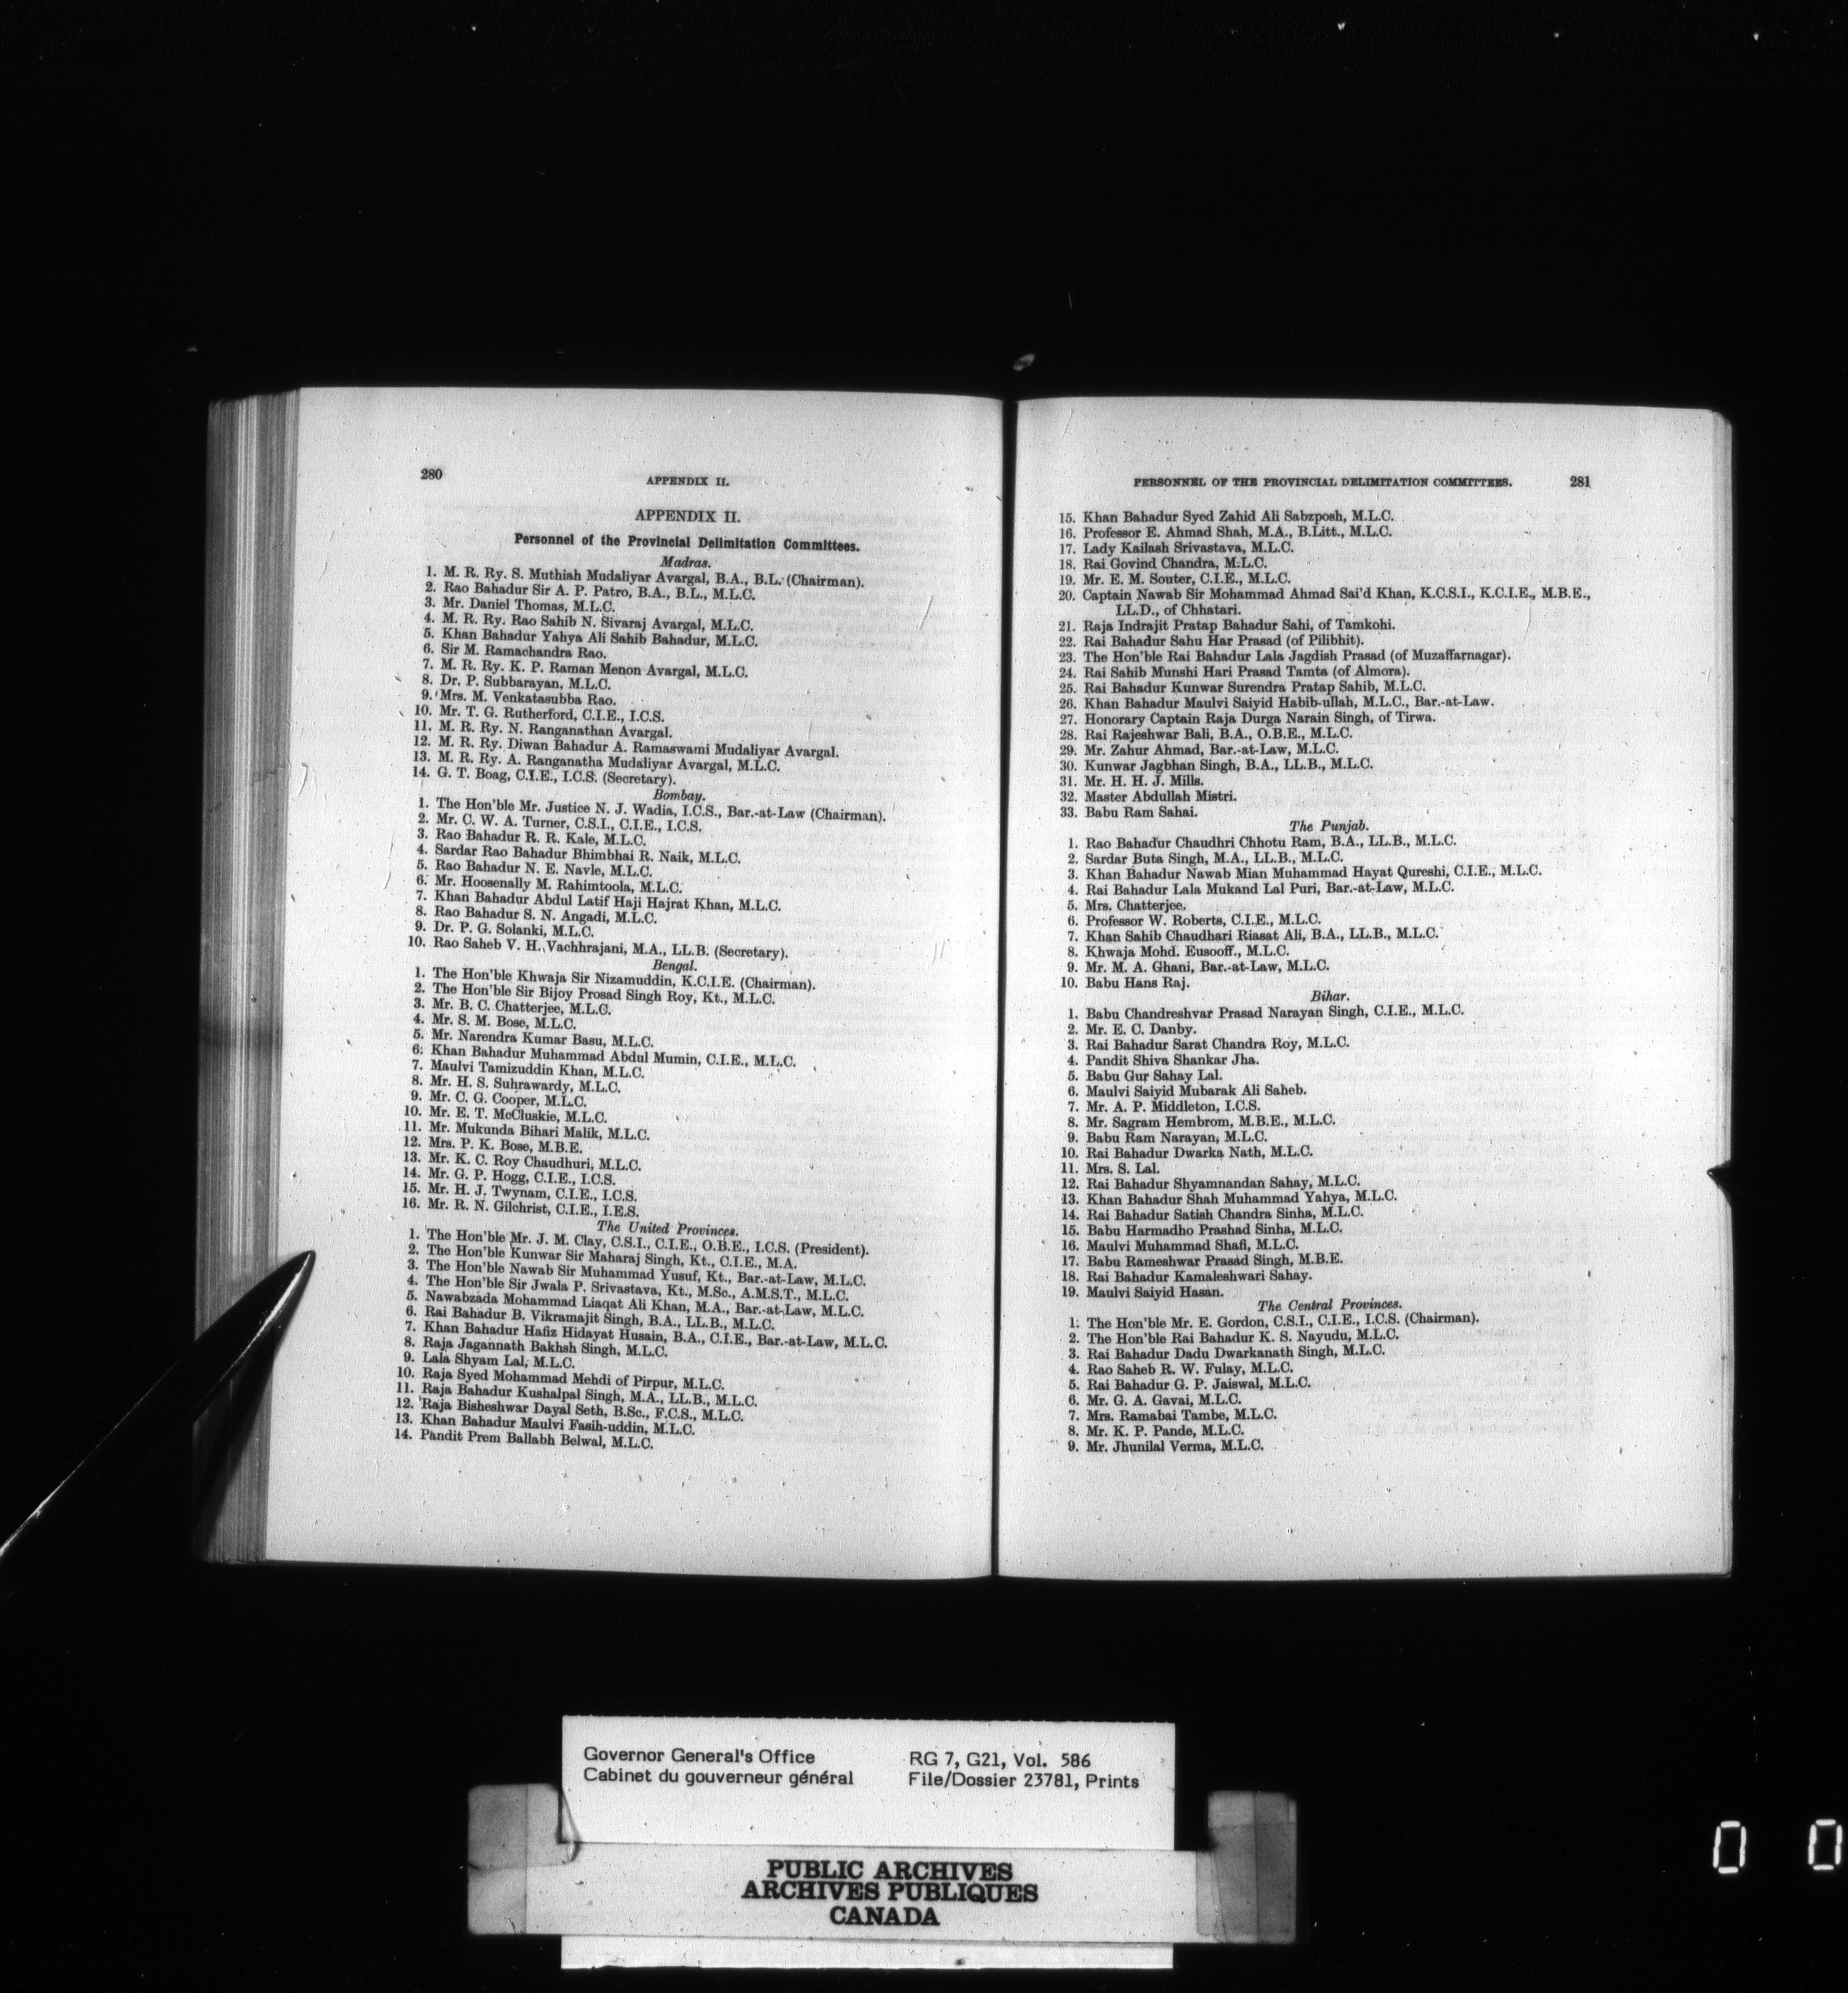 280
APPENDIX II.
APPENDIX II.
Personnel of the Provincial Delimitation Committees.
Madras.
1. M. R. Ry. S. Muthiah Mudaliyar Avargal, B.A., B.L. (Chairman).
2. Rao Bahadur Sir A. P. Patro, B.A., B.L., M.L.C.
3. Mr. Daniel Thomas, M.L.C.
4. M. R. Ry. Rao Sahib N. Sivaraj Avargal, M.L.C.
5. Khan Bahadur Yahya Ali Sahib Bahadur, M.L.C.
6. Sir M. Ramachandra Rao.
7. M. R. Ry. K. P. Raman Menon Avargal, M.L.C.
8. Dr. P. Subbarayan, M.L.C.
9. Mrs. M. Venkatasubba Rao.
10. Mr. T. G. Rutherford, C.I.E., I.C.S.
11. M. R. Ry. N. Ranganathan Avargal.
12. M. R. Ry. Diwan Bahadur A. Ramaswami Mudaliyar Avargal.
13. M. R. Ry. A. Ranganatha Mudaliyar Avargal, M.L.C.
14. G. T. Boag, C.I.E., I.C.S. (Secretary).
Bombay.
1. The Hon'ble Mr. Justice N. J. Wadia, I.C.S., Bar.-at-Law (Chairman).
2. Mr. C. W. A. Turner, C.S.I., C.I.E., I.C.S.
3. Rao Bahadur R. R. Kale, M.L.C.
4. Sardar Rao Bahadur Bhimbhai R. Naik, M.L.C.
5. Rao Bahadur N. E. Navle, M.L.C.
6. Mr. Hoosenally M. Rahimtoola, M.L.C.
7. Khan Bahadur Abdul Latif Haji Hajrat Khan, M.L.C.
8. Rao Bahadur S. N. Angadi, M.L.C.
9. Dr. P. G. Solanki, M.L.C.
10. Rao Saheb V. H. Vachhrajani, M.A., LL.B. (Secretary).
Bengal.
1. The Hon'ble Khwaja Sir Nizamuddin, K.C.I.E. (Chairman).
2. The Hon'ble Sir Bijoy Prosad Singh Roy, Kt., M.L.C.
3. Mr. B. C. Chatterjee, M.L.C.
4. Mr. S. M. Bose, M.L.C.
5. Mr. Narendra Kumar Basu, M.L.C.
6. Khan Bahadur Muhammad Abdul Mumin, C.I.E., M.L.C.
7. Maulvi Tamizuddin Khan, M.L.C.
8. Mr. H. S. Suhrawardy, M.L.C.
9. Mr. C. G. Cooper, M.L.C.
10. Mr. E. T. McCluskie, M.L.C.
11. Mr. Mukunda Bihari Malik, M.L.C.
12. Mrs. P. K. Bose, M.B.E.
13. Mr. K. C. Roy Chaudhuri, M.L.C.
14. Mr. G. P. Hogg, C.I.E., I.C.S.
15. Mr. H. J. Twynam, C.I.E., I.C.S.
16. Mr. R. N. Gilchrist, C.I.E., I.E.S.
The United Provinces.
1. The Hon'ble Mr. J. M. Clay, C.S.I., C.I.E., O.B.E., I.C.S. (President).
2. The Hon'ble Kunwar Sir Maharaj Singh, Kt., C.I.E., M.A.
3. The Hon'ble Nawab Sir Muhammad Yusuf, Kt., Bar.-at-Law, M.L.C.
4. The Hon'ble Sir Jwala P. Srivastava, Kt., M.Sc., A.M.S.T., M.L.C.
5. Nawabzada Mohammad Liaqat Ali Khan, M.A., Bar.-at-Law, M.L.C.
6. Rai Bahadur B. Vikramajit Singh, B.A., LL.B., M.L.C.
7. Khan Bahadur Hafiz Hidayat Husain, B.A., C.I.E., Bar.-at-Law, M.L.C.
8. Raja Jagannath Bakhsh Singh, M.L.C.
9. Lala Shyam Lal, M.L.C.
10. Raja Syed Mohammad Mehdi of Pirpur, M.L.C.
11. Raja Bahadur Kushalpal Singh, M.A., LL.B., M.L.C.
12. Raja Bisheshwar Dayal Seth, B.Sc., F.C.S., M.L.C.
13. Khan Bahadur Maulvi Fasih-uddin, M.L.C.
14. Pandit Prem Ballabh Belwal, M.L.C.
PERSONNEL OF THE PROVINCIAL DELIMITATION COMMITTEES. 281
15. Khan Bahadur Syed Zahid Ali Sabzposh, M.L.C.
16. Professor E. Ahmad Shah, M.A., B.Litt., M.L.C.
17. Lady Kailash Srivastava, M.L.C.
18. Rai Govind Chandra, M.L.C.
19. Mr. E. M. Souter, C.I.E., M.L.C.
20. Captain Nawab Sir Mohammad Ahmad Sai'd Khan, K.C.S.I., K.C.I.E., M.B.E.,
LL.D., of Chhatari.
21. Raja Indrajit Pratap Bahadur Sahi, of Tamkohi.
22. Rai Bahadur Sahu Har Prasad (of Pilibhit).
23. The Hon'ble Rai Bahadur Lala Jagdish Prasad (of Muzaffarnagar).
24. Rai Sahib Munshi Hari Prasad Tamta (of Almora).
25. Rai Bahadur Kunwar Surendra Pratap Sahib, M.L.C.
26. Khan Bahadur Maulvi Saiyid Habib-ullah, M.L.C., Bar.-at-Law.
27. Honorary Captain Raja Durga Narain Singh, of Tirwa.
28. Rai Rajeshwar Bali, B.A., O.B.E., M.L.C.
29. Mr. Zahur Ahmad, Bar.-at-Law, M.L.C.
30. Kunwar Jagbhan Singh, B.A., LL.B., M.L.C.
31. Mr. H. H. J. Mills.
32. Master Abdullah Mistri.
33. Babu Ram Sahai.
The Punjab.
1. Rao Bahadur Chaudhri Chhotu Ram, B.A., LL.B., M.L.C.
2. Sardar Buta Singh, M.A., LL.B., M.L.C.
3. Khan Bahadur Nawab Mian Muhammad Hayat Qureshi, C.I.E., M.L.C.
4. Rai Bahadur Lala Mukand Lal Puri, Bar.-at-Law, M.L.C.
5. Mrs. Chatterjee.
6. Professor W. Roberts, C.I.E., M.L.C.
7. Khan Sahib Chaudhari Riasat Ali, B.A., LL.B., M.L.C.
8. Khwaja Mohd. Eusooff., M.L.C.
9. Mr. M. A. Ghani, Bar.-at-Law, M.L.C.
10. Babu Hans Raj.
Bihar.
1. Babu Chandreshvar Prasad Narayan Singh, C.I.E., M.L.C.
2. Mr. E. C. Danby.
3. Rai Bahadur Sarat Chandra Roy, M.L.C.
4. Pandit Shiva Shankar Jha.
5. Babu Gur Sahay Lal.
6. Maulvi Saiyid Mubarak Ali Saheb.
7. Mr. A. P. Middleton, I.C.S.
8. Mr. Sagram Hembrom, M.B.E., M.L.C.
9. Babu Ram Narayan, M.L.C.
10. Rai Bahadur Dwarka Nath, M.L.C.
11. Mrs. S. Lal.
12. Rai Bahadur Shyamnandan Sahay, M.L.C.
13. Khan Bahadur Shah Muhammad Yahya, M.L.C.
14. Rai Bahadur Satish Chandra Sinha, M.L.C.
15. Babu Harmadho Prashad Sinha, M.L.C.
16. Maulvi Muhammad Shafi, M.L.C.
17. Babu Rameshwar Prasad Singh, M.B.E.
18. Rai Bahadur Kamaleshwari Sahay.
19. Maulvi Saiyid Hasan.
The Central Provinces.
1. The Hon'ble Mr. E. Gordon, C.S.I., C.I.E., I.C.S. (Chairman).
2. The Hon'ble Rai Bahadur K. S. Nayudu, M.L.C.
3. Rai Bahadur Dadu Dwarkanath Singh, M.L.C.
4. Rao Saheb R. W. Fulay, M.L.C.
5. Rai Bahadur G. P. Jaiswal, M.L.C.
6. Mr. G. A. Gavai, M.L.C.
7. Mrs. Ramabai Tambe, M.L.C.
8. Mr. K. P. Pande, M.L.C.
9. Mr. Jhunilal Verma, M.L.C.
Governor General's Office RG 7, G21, Vol. 586
Cabinet du gouverneur général File/Dossier 23781, Prints
PUBLIC ARCHIVES
ARCHIVES PUBLIQUES
CANADA
0 0